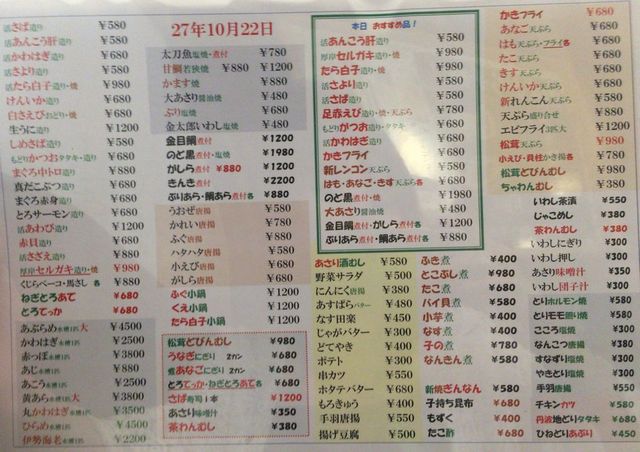 活さば造り ¥580
活あんこう肝造り ¥580
活かわはぎ造り ¥680
活さより造り ¥580
活たら白子造り・焼 ¥980
けんいか造り ¥680
白さえびおどり・焼 ¥680
生うに造り ¥1200
しめさば造り ¥580
もどりかつおタタキ・造り ¥680
まぐろ中トロ造り ¥880
真だこぶつ造り ¥680
まぐろ赤身造り ¥680
とろサーモン造り ¥680
活あわび造り ¥1200
赤貝造り ¥880
活さざえ造り ¥880
厚岸セルガキ造り・焼 ¥980
くじらベーコ・馬さし各 ¥880
ねぎとろあて ¥680
とろてっか ¥680
あぶらめ水槽1匹大 ¥4500
かわはぎ水槽1匹 ¥2500
赤っぽ水槽1匹 ¥3800
あじ水槽1匹 ¥880
あこう水槽1匹 ¥2500
黄あら水槽1匹大 ¥3800
丸かわはぎ水槽1匹 ¥3500
ひらめ水槽1匹 ¥4500
伊勢海老水槽1匹 ¥2200
27年10月22日
太刀魚塩焼・煮付 ¥780
甘鯛若狭焼 ¥880 ¥1200
かます焼 ¥880
大あさり醤油焼 ¥480
ぶり塩焼 ¥680
金太郎いわし塩焼 ¥680
金目鯛煮付 ¥1200
のど黒煮付・塩焼 ¥1980
がしら煮付 ¥880 ¥1200
きんき煮付 ¥2200
ぶりあら・鯛あら煮付各 ¥880
うおぜ唐揚 ¥580
かれい唐揚 ¥780
ふぐ唐揚 ¥880
ハタハタ唐揚 ¥580
小えび唐揚 ¥680
がしら唐揚 ¥880
ふぐ小鍋 ¥1200
くえ小鍋 ¥1200
たら白子小鍋 ¥1200
松茸どびんむし ¥980
うなぎにぎり 2カン ¥680
煮あなごにぎり 2カン ¥680
とろてっか・ねぎとろあて各 ¥680
さば寿司1本 ¥1200
あさり味噌汁 ¥350
茶わんむし ¥380
本日おすすめ品!
活あんこう肝造り ¥580
厚岸セルガキ造り・焼 ¥980
たら白子造り・焼 ¥980
活さより造り ¥580
活さば造り ¥580
足赤えび造り・焼・天ぷら ¥780
もどりがつお造り・タタキ ¥680
活かわはぎ造り ¥680
かきフライ ¥680
新レンコン天ぷら ¥580
はも・あなご・きす天ぷら各 ¥680
のど黒煮付・焼 ¥1980
大あさり醤油焼 ¥480
金目鯛煮付・がしら煮付各 ¥1200
ぶりあら・鯛あら煮付各 ¥880
あさり酒むし ¥580
野菜サラダ ¥500
にんにく唐揚 ¥380
あすぱらバター ¥480
なす田楽 ¥450
じゃがバター ¥300
どてやき ¥400
ポテト ¥300
串カツ ¥550
ホタテバター ¥680
もろきゅう ¥400
手羽唐揚 ¥550
揚げ豆腐 ¥500
ふき煮 ¥400
とこぶし煮 ¥980
たこ煮 ¥680
バイ貝煮 ¥580
小芋煮 ¥400
なす煮 ¥400
子の煮 ¥780
なんきん煮 ¥580
新焼ぎんなん ¥580
子持ち昆布 ¥680
もずく ¥400
たこ酢 ¥680
かきフライ ¥680
あなご天ぷら ¥680
はも天ぷら・フライ各 ¥680
たこ天ぷら ¥680
きす天ぷら ¥680
けんいか天ぷら ¥680
新れんこん天ぷら ¥580
天ぷら盛り合せ ¥880
エビフライ3匹大 ¥1200
松茸天ぷら ¥980
小えび・貝柱かき揚各 ¥780
松茸どびんむし ¥980
ちゃわんむし ¥380
いわし茶漬 ¥550
じゃこめし ¥380
茶わんむし ¥380
いわしにぎり ¥300
いわし押し ¥300
あさり味噌汁 ¥350
いわし団子汁 ¥350
とりホルモン焼 ¥580
とりモモ照り焼 ¥580
こころ塩焼 ¥300
なんこつ唐揚 ¥380
すなずり塩焼 ¥300
やきとり塩焼 ¥300
手羽唐揚 ¥550
チキンカツ ¥580
丹波地どりタタキ ¥680
ひねどりあぶり ¥450